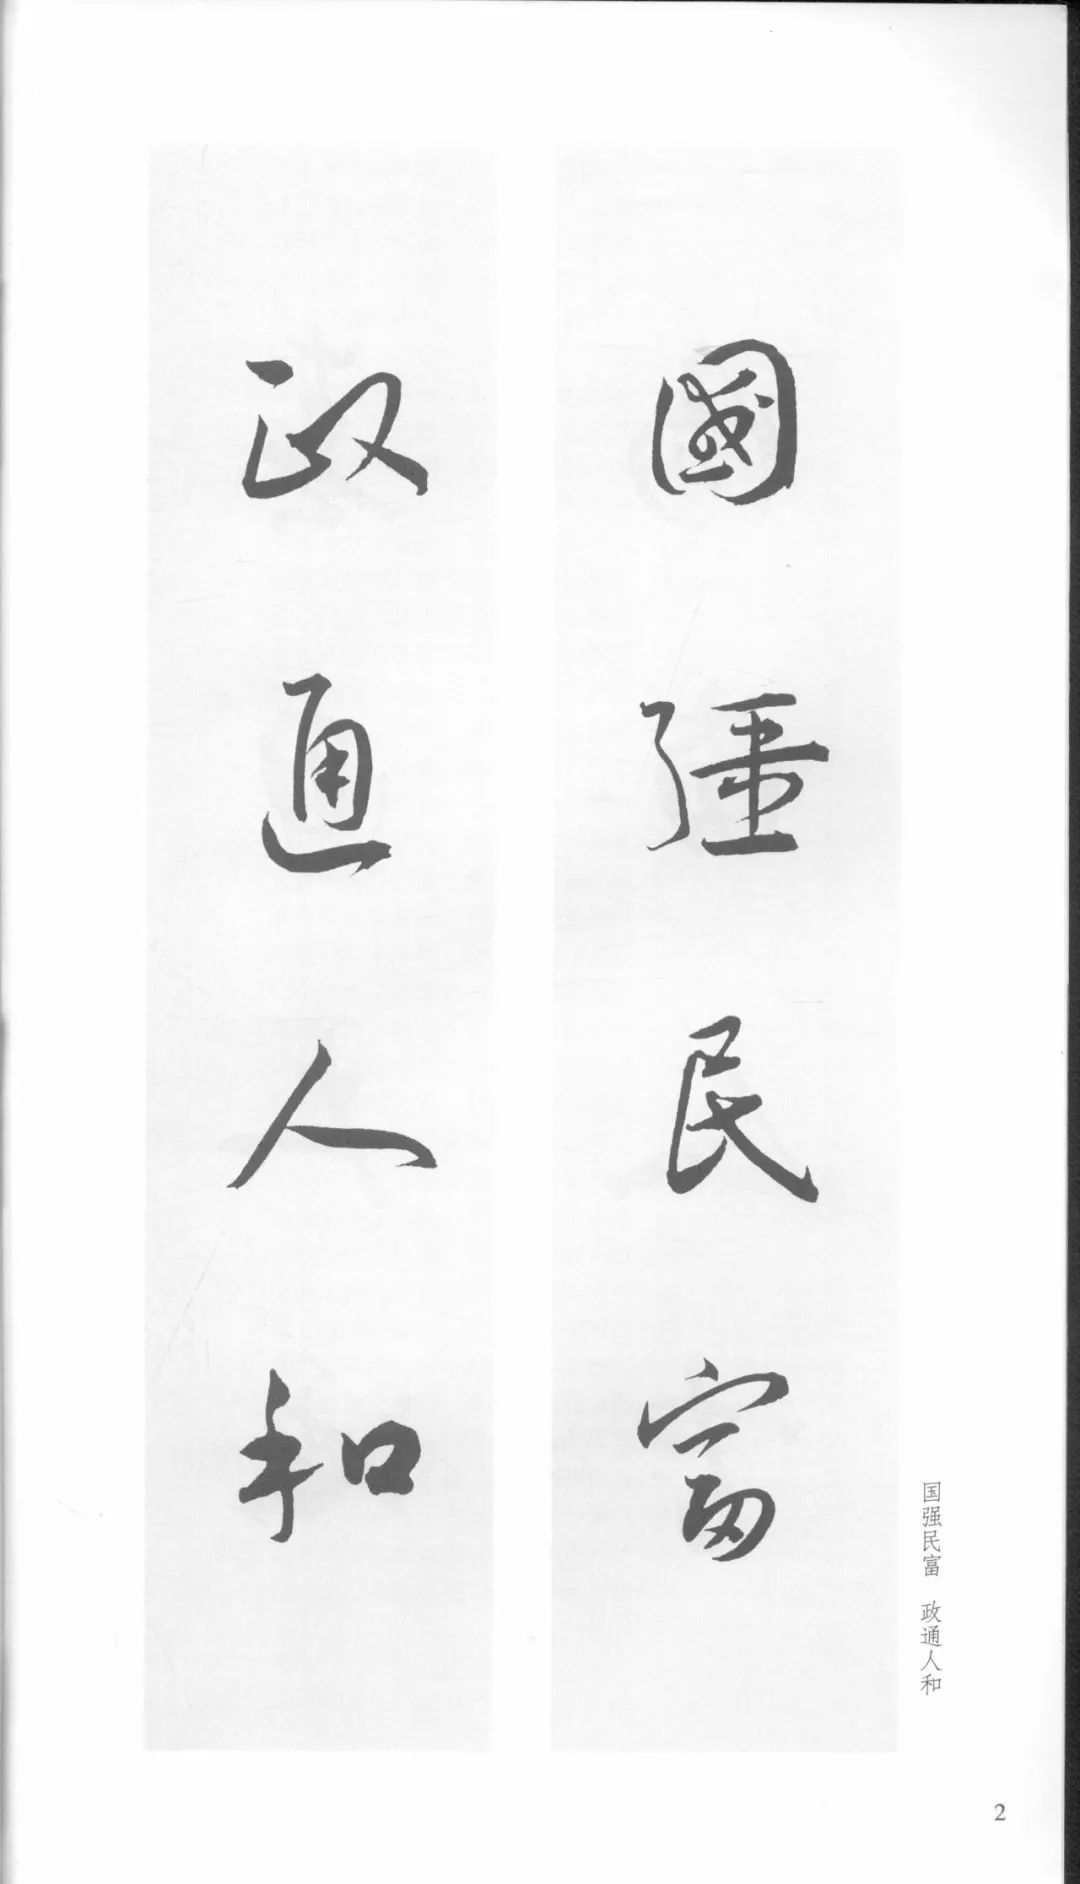 國彊民富
政通人和
国强民富 政通人和
2